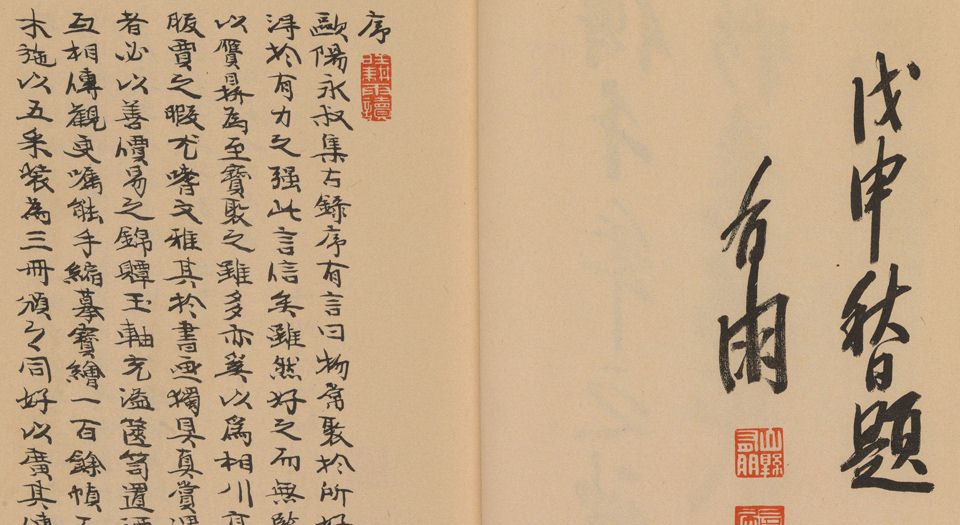 戊申秋日題
有朋
山縣有朋
序
歐陽永叔集古錄序有言曰物常聚於所好
淂於有力之强此言信矣雖然好之而無
以贗鼎為至寶聚之雖多亦奚以爲相川
販賣之暇尤嗜文雅其於書画獨具真賞
者必以善價易之錦贉玉軸充溢篋笥置
互相傳觀更囑能手縮摹寶繪一百餘幀
末施以五采裝為三冊頒之同好以廣其傳